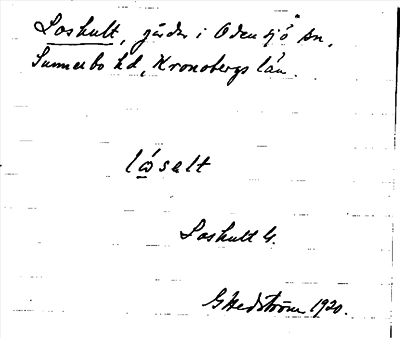 Loshult, gårdar i Odensjö sn,
Sunnerbo hd, Kronobergs län.
lòsult
Loshult G.
G Hedström 1920.